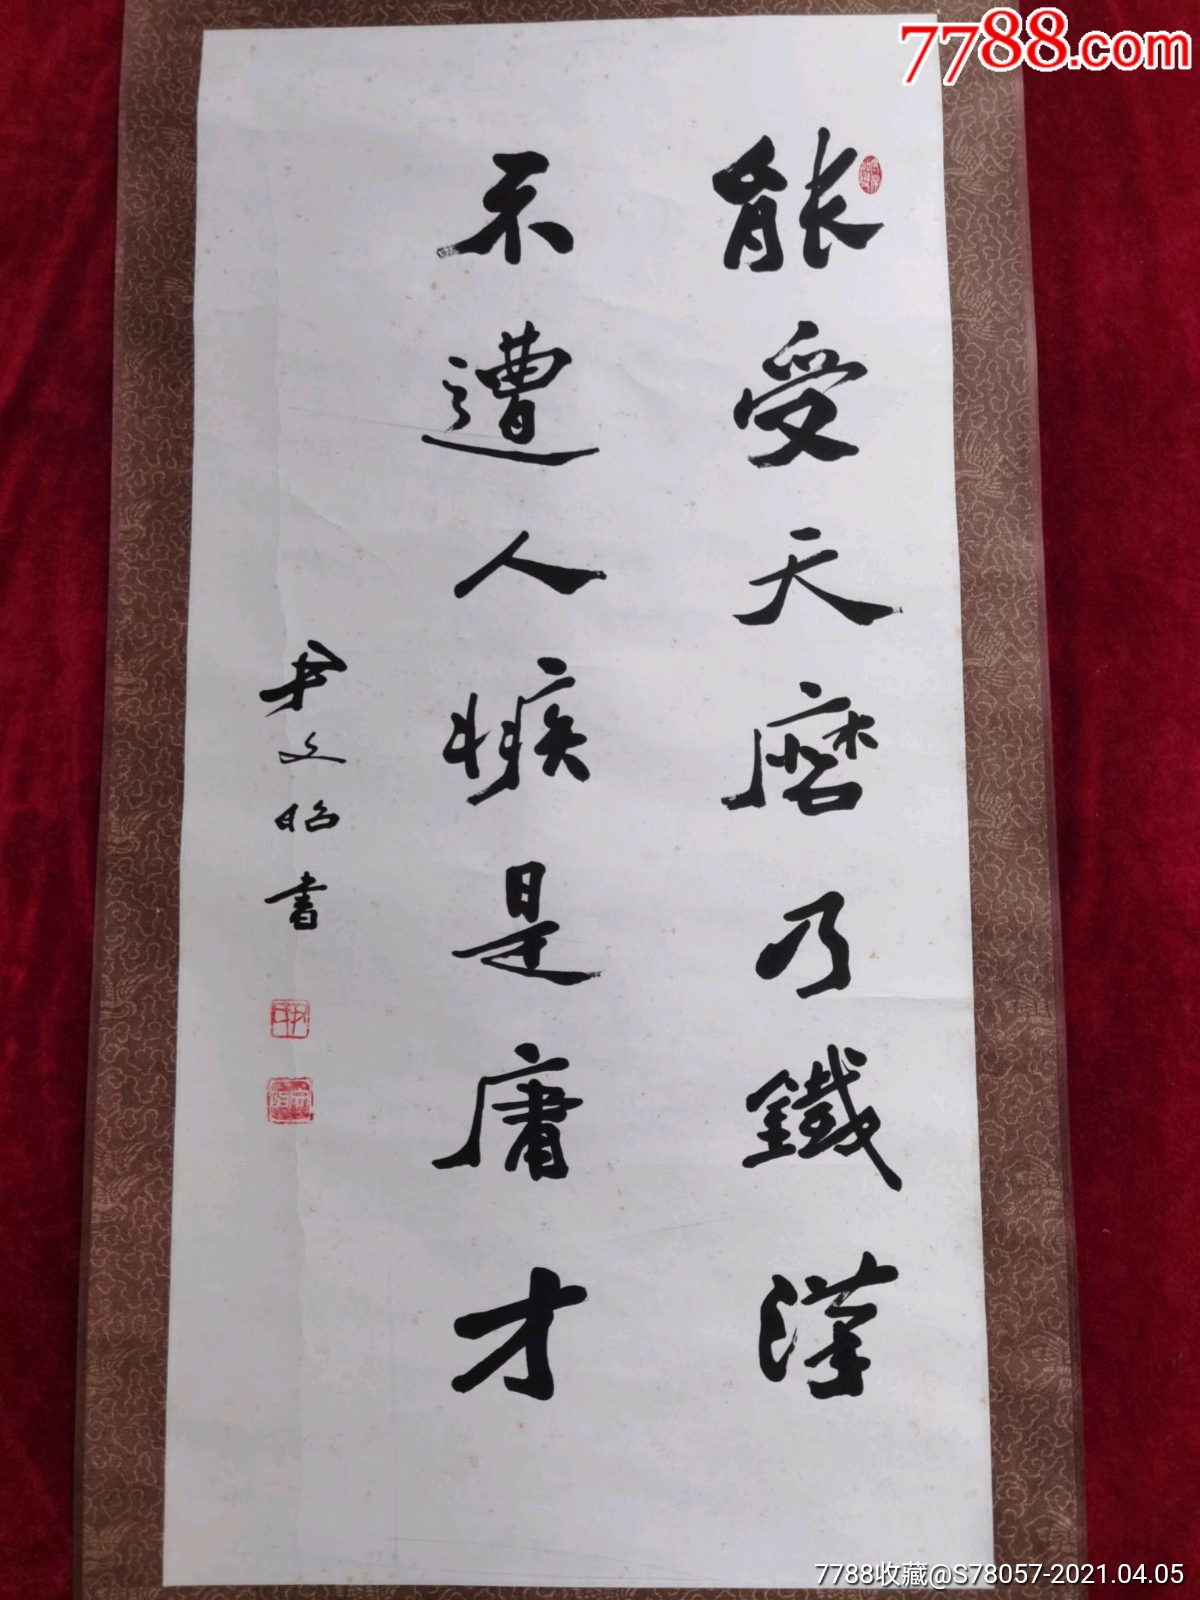 7788.com
能受天磨乃鐵漢
不遭人嫉是庸才
尹文昭書
7788收藏@S78057-2021.04.05